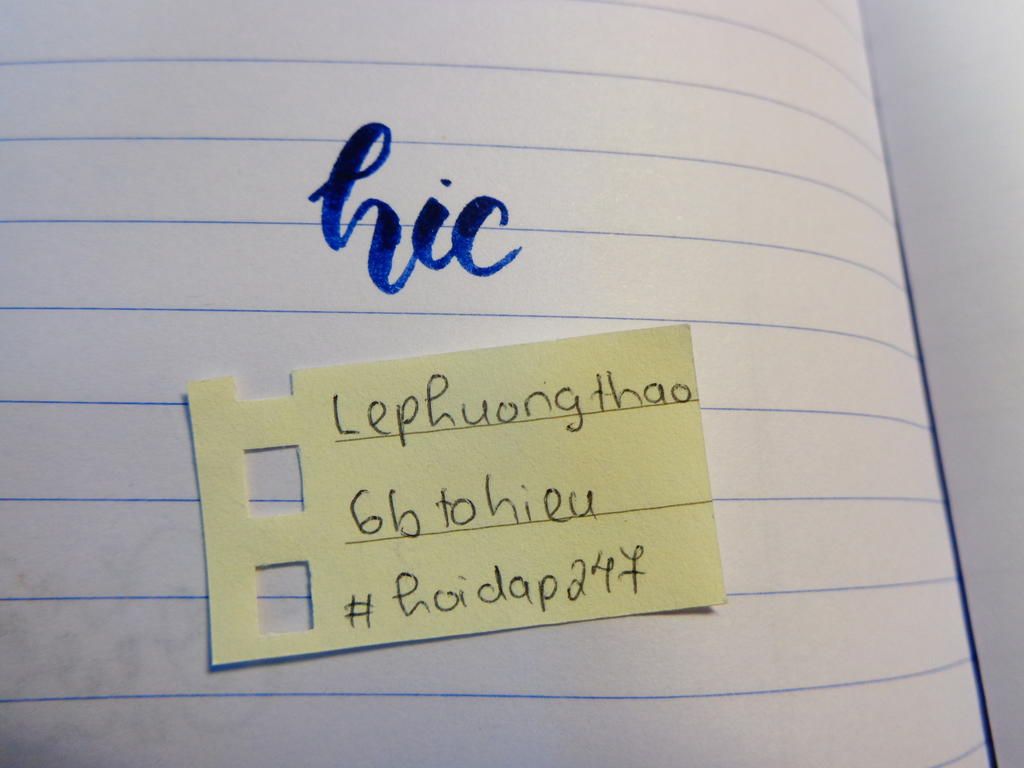 hic
Lephuongthao
6b tohieu
# hoidap247